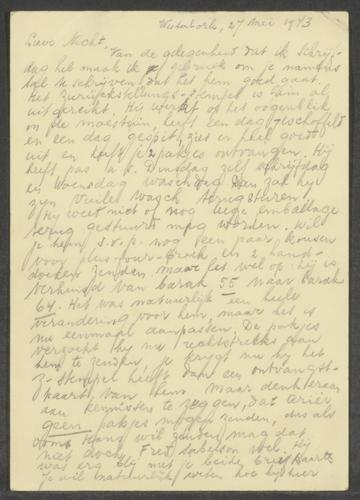 Westerbork, 27 Mei 1943
Lieve Nicht, Van de gelegenheid dat ik schrijf-
dag heb maak ik gebruik om je namens
te schrijven dat het hem goed gaat.
Het Zurückstellungs-Stempel is hem al
uitgereikt. Hij werkt op het oogenblik
in de moestuin, heeft een dag geschoffeld
en een dag gespit, ziet er heel goed
uit en heeft je 2 pakjes ontvangen. Hij
heeft was a.s. Dinsdag zelf schrijfdag
en Woensdag waschdag. Dan zal hij
zijn vuile wasch terugsturen.
Hij weet niet of nog lege emballage
terug gestuurd mag worden. Wil
je hem s.v.p. nog een paar kousen
voor plus-four-broek en 2 hand-
doeken zenden. maar let wel op: hij is
verhuisd van barak 55 naar barak
64. Het was natuurlijk een heele
verandering voor hem, maar het is
nu eenmaal aanpassen. De pakjes
verzocht hij me rechtstreeks aan
hem te zenden, je krijgt nu hij het
Z-Stempel heeft dan een ontvangst-
kaart van hem. Maar denk eraan
aan kennissen te zeggen, dat Ariër
geen pakjes mogen zenden, dus als
Hans wil zenden mag dat
niet doch Fred wel. Hij
was erg blij met je beide
Je wil natuurlijk weten hoe hij hier